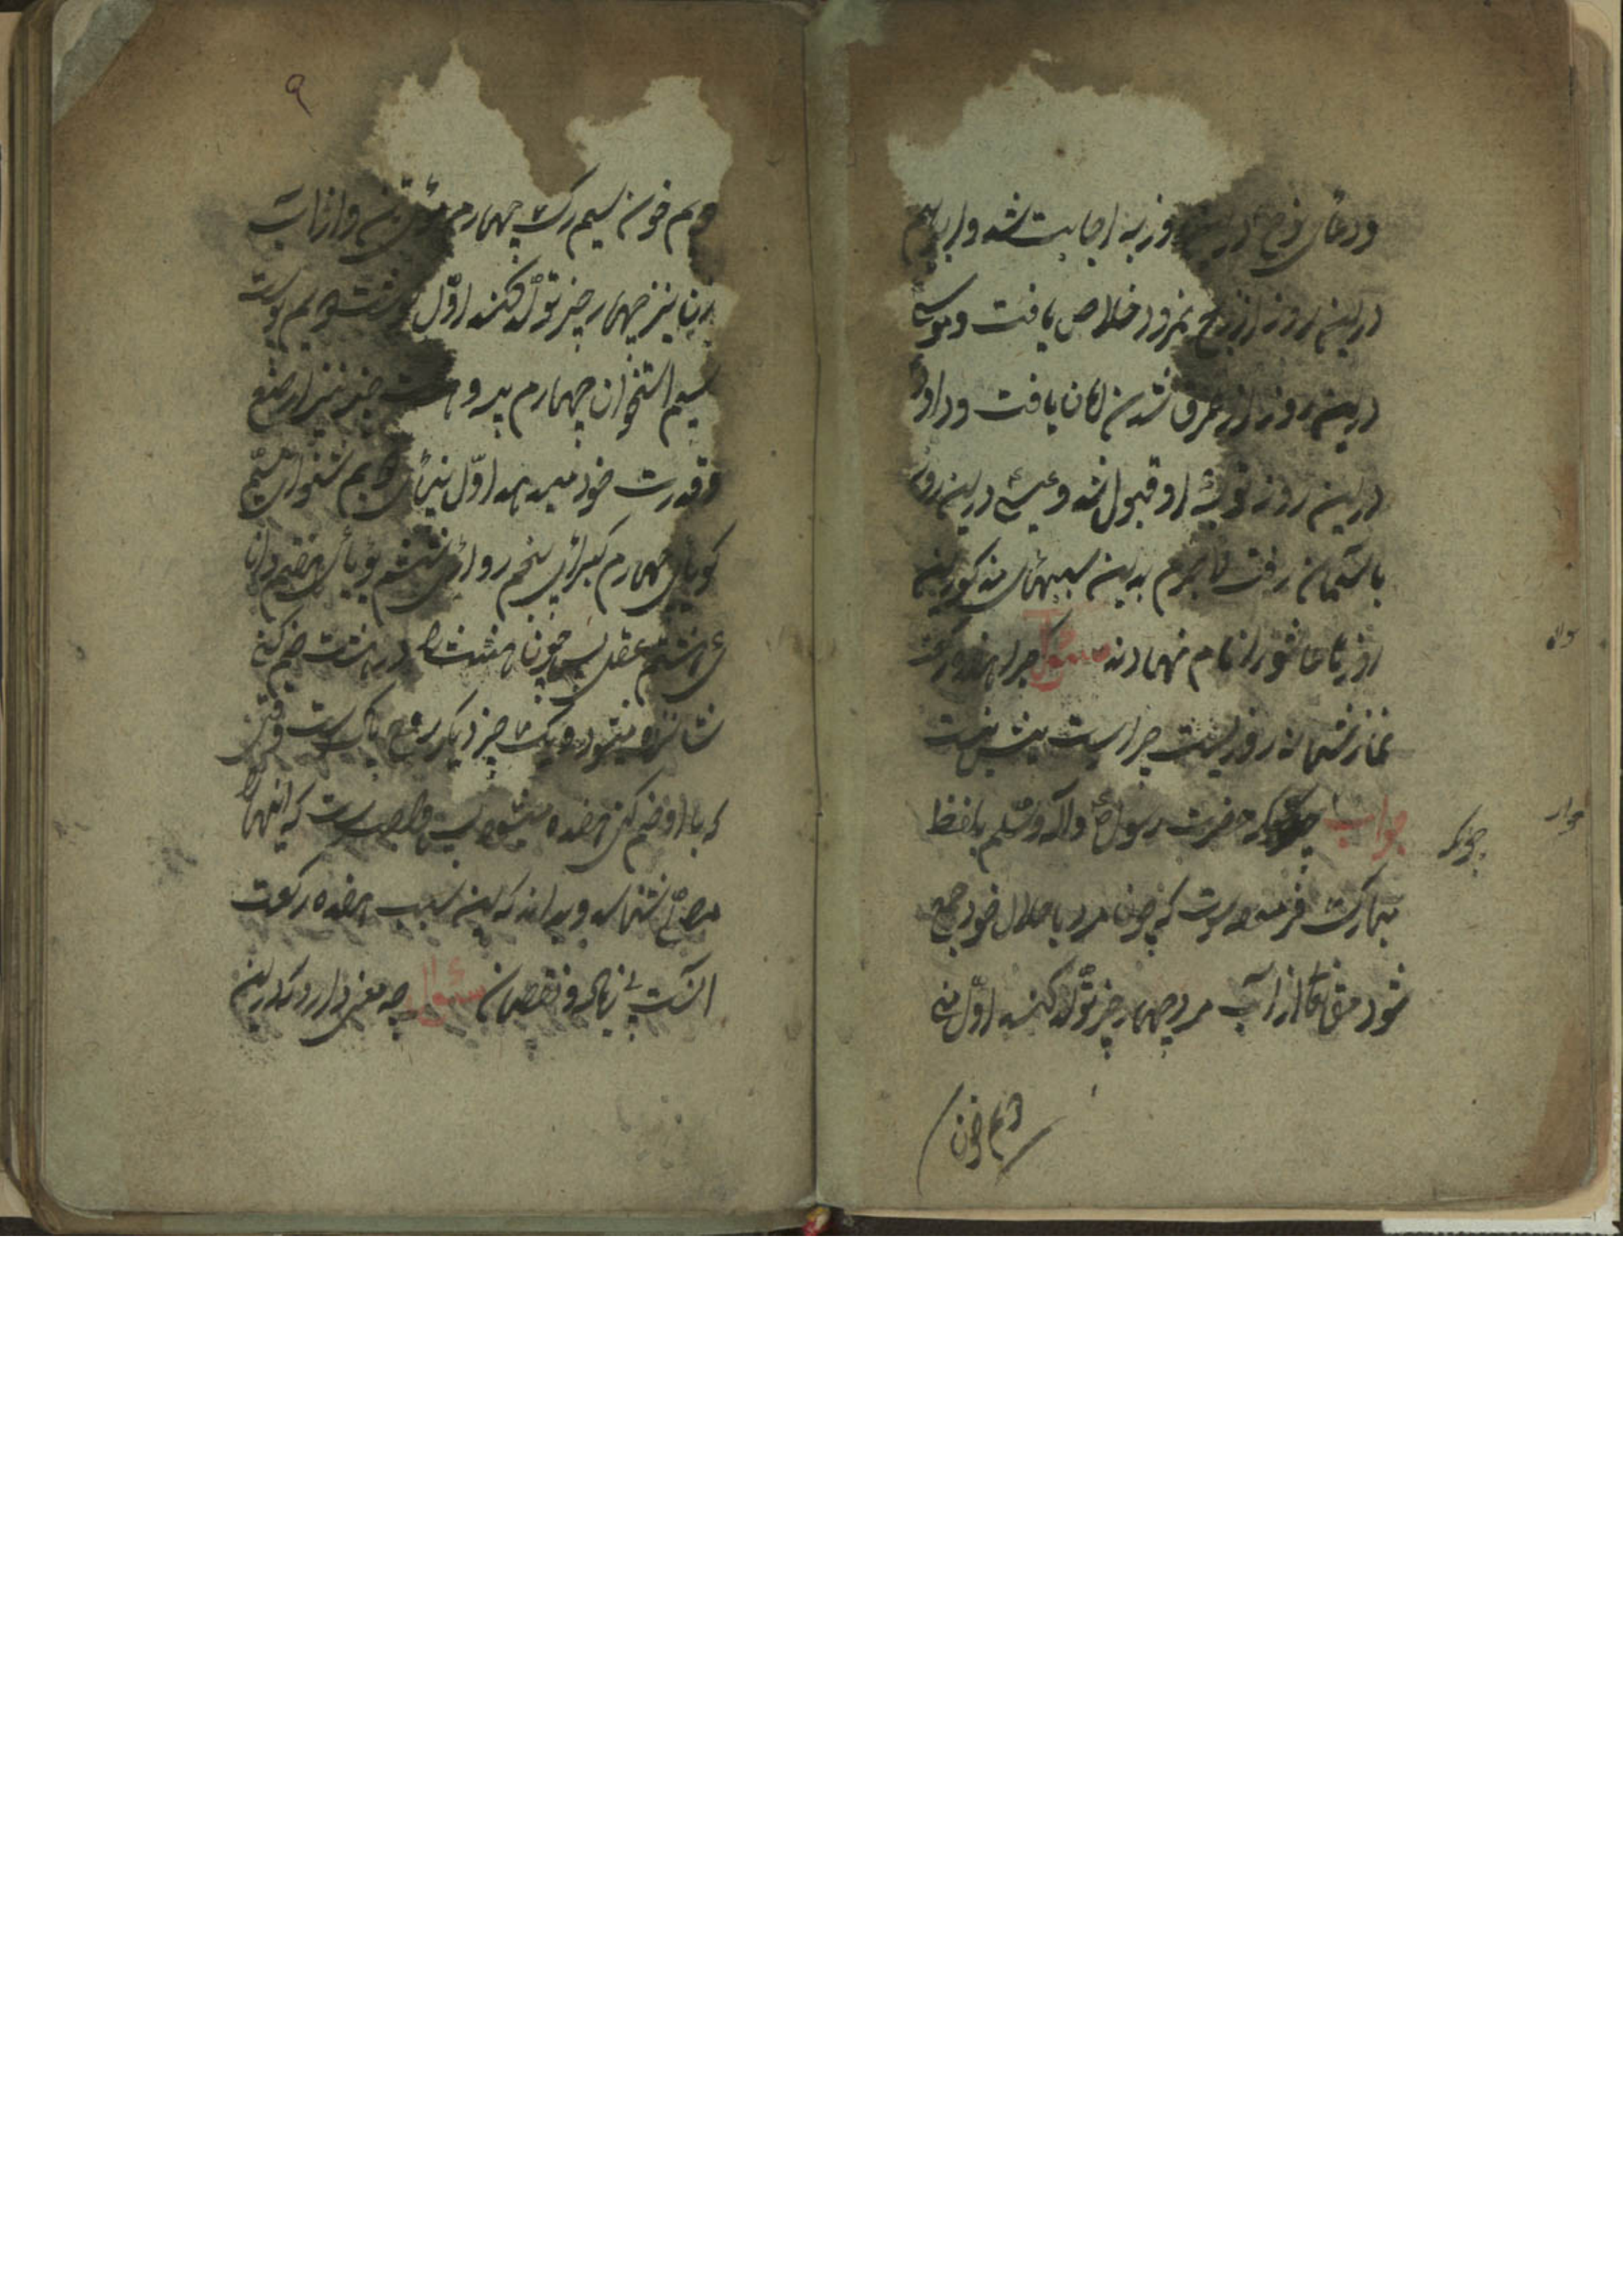 ودعای نوح درین روز به اجابت شد وابراهیم
درین روز از نمرود خلاص یافت وموسی
درین روز از غرق شدن امان یافت وداود
درین روز توبهٔ او قبول شد وعیسی درین روز
باسمان رفت لاجرم بدین سببهای مذکور این
روز را عاشورا نام نهادند سئوال چرا هفده رکعت
نماز شبانه روز یست چرا بیست نیست
جواب که حضرت رسول ع وآله وسلم بلفظ
چونکه
مبارک فرموده است که چون مرد با حلال خود جمع
شود از آب مرد چهار چیز تولد کند اول منی
دویم خون
۹
دویم خون سیم رگ چهارم واز آب
زن نیز چهار چیز تولد کند اول گوشت دویم پوست
سیم استخوان چهارم پیه و هشت چیز نیز از صنع
وقدرت خود میدهد اول بینائی دویم شنوائی سیم
گویائی چهارم گیرائی پنجم روائی ششم بویائی هفتم دانا
ئی هشتم عقل پس چون هشت را در هشت ضم کنی
شانزده میشود ویک چیز دیگر روح پاک است وقتی
که با او ضم کنی هفده میشود پس واجب است که اینها را
مصلی بشناسد وبداند که این سبب هفده رکعت
است بی زیاده ونقصان سئوال چه معنی دارد که درین